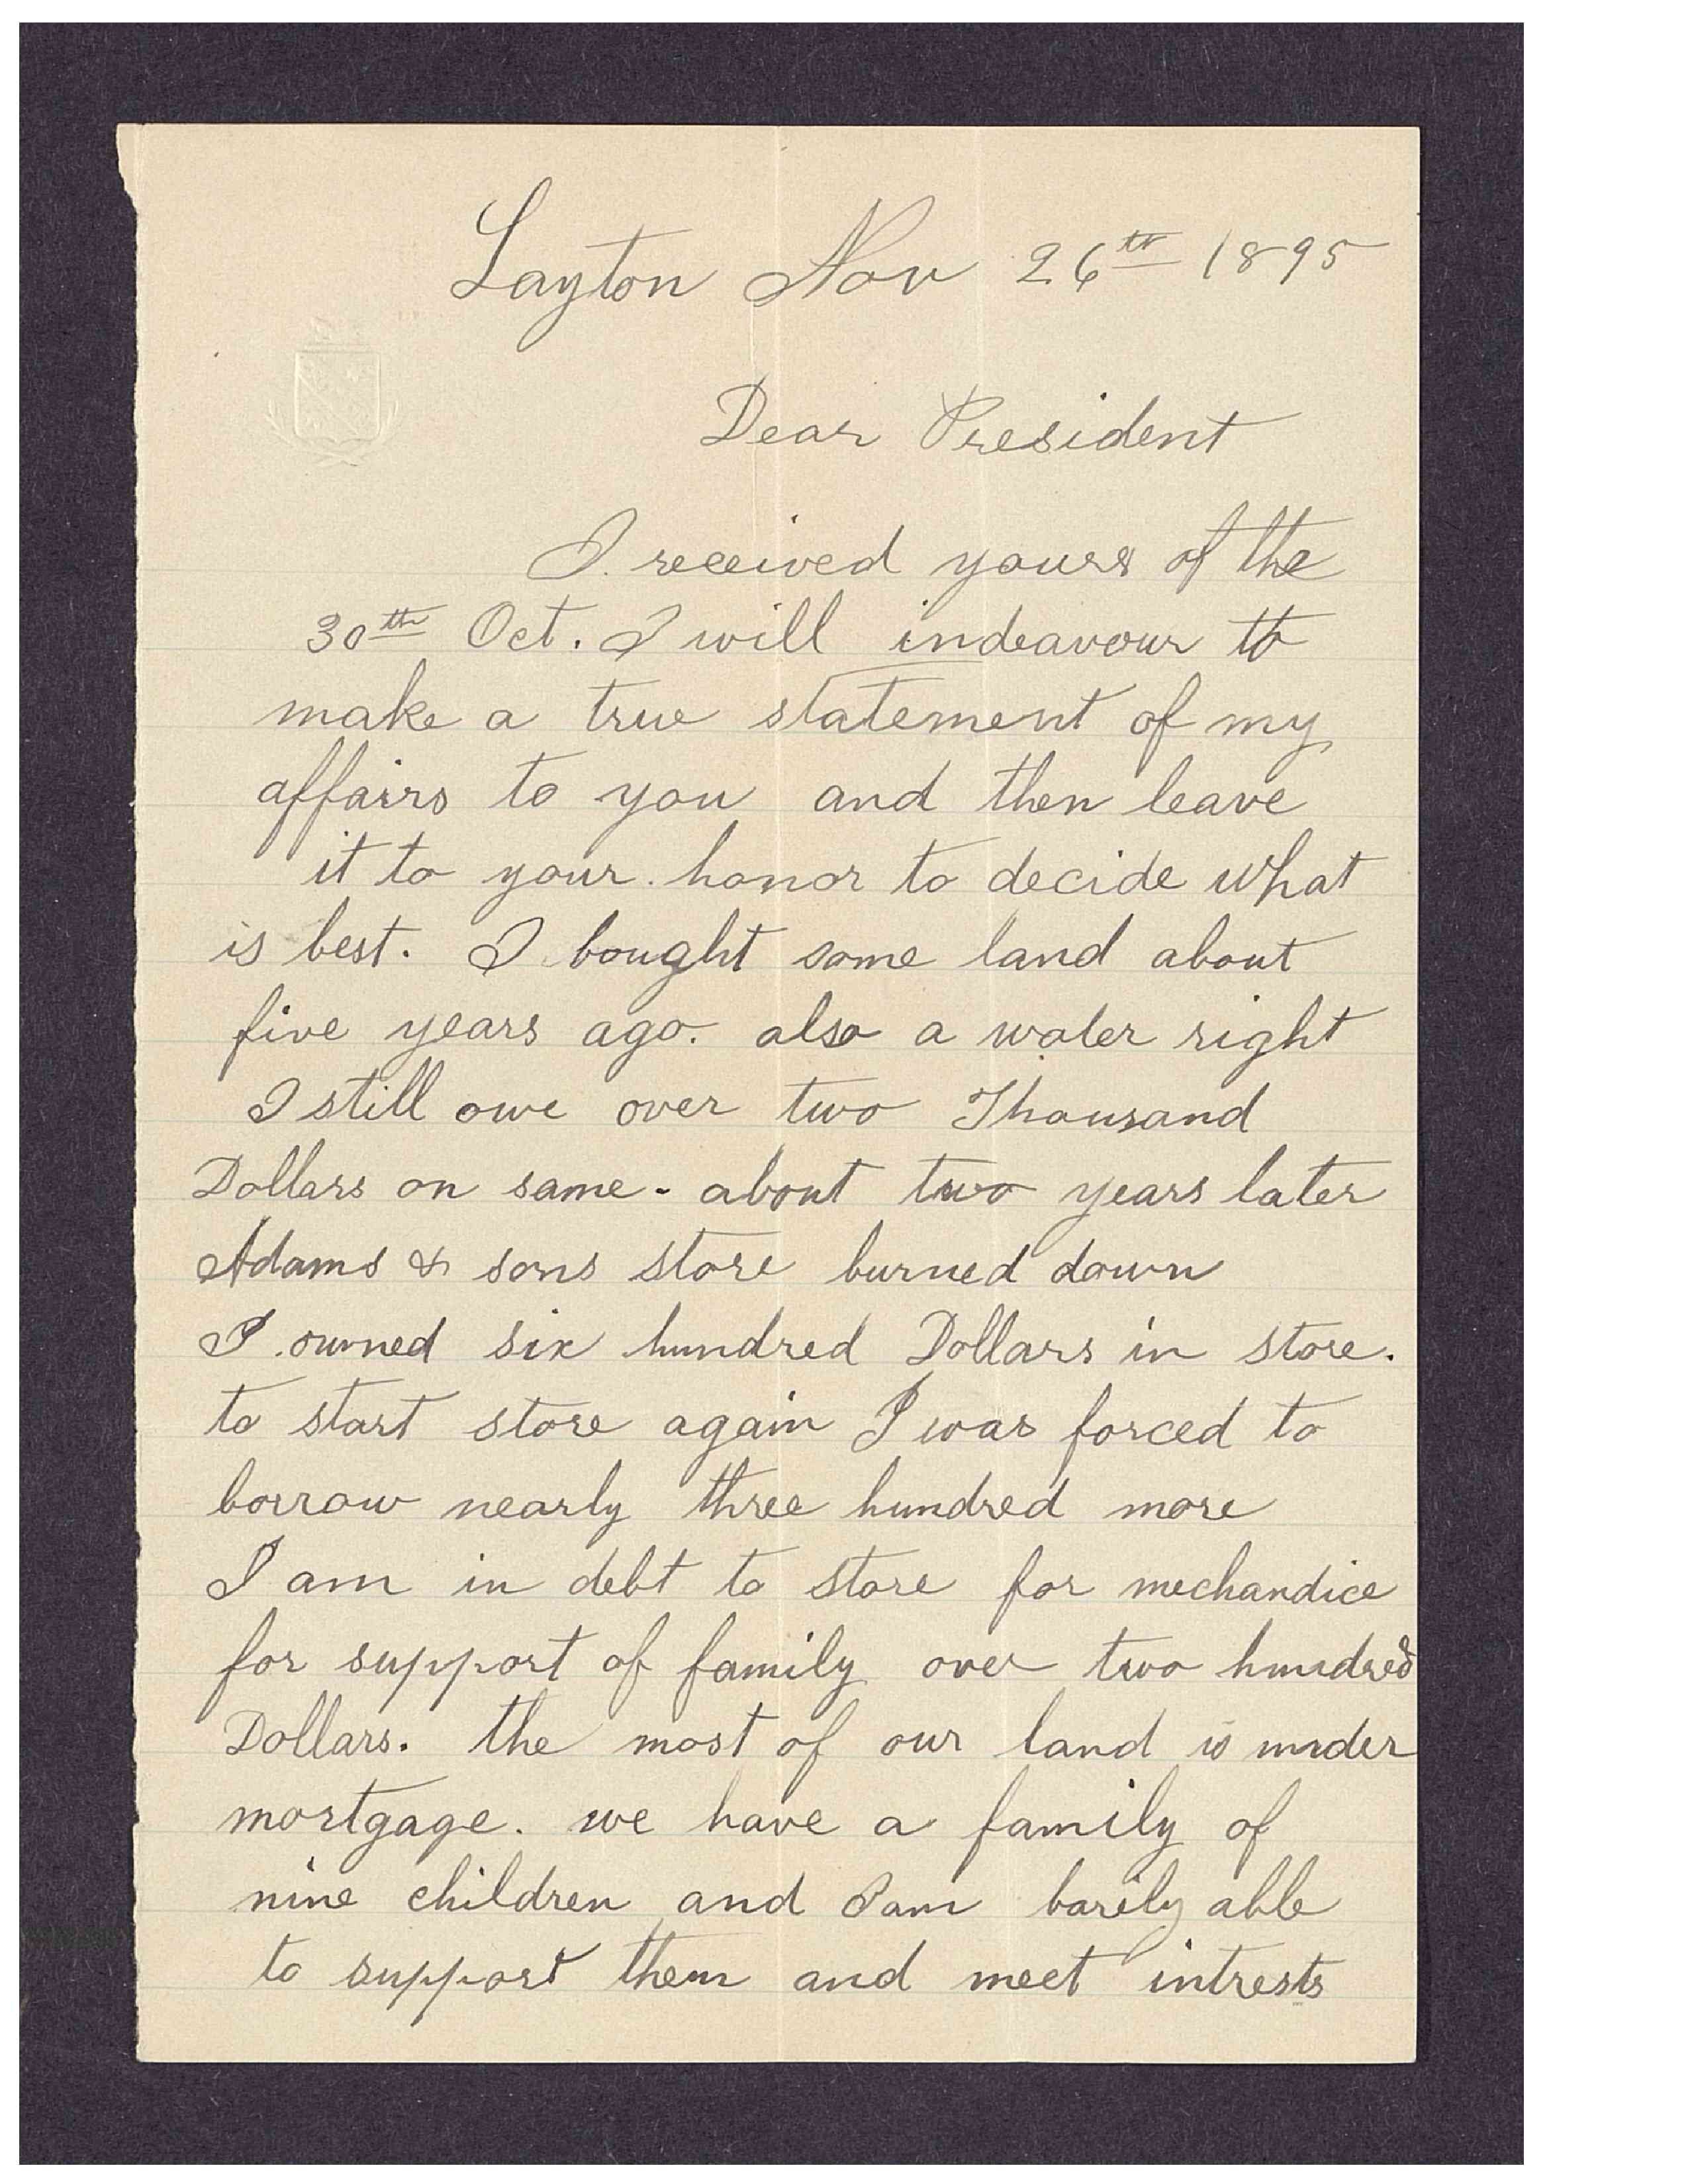 Layton Nov 26th 1895
Dear President
I received yours of the
30th Oct. I will indeavour to
make a true statement of my
affairs to you and then leave
it to your honor to decide what
is best. I bought some land about
five years ago. also a water right
I still owe over two Thousand
Dollars on same - about two years later
Adams & sons store burned down
I owned six hundred Dollars in store.
to start store again I was forced to
borrow nearly three hundred more
I am in debt to store for mechandice
for support of family over two hundred
Dollars. the most of our land is under
mortgage. we have a family of
nine children and I am barily able
to support them and meet intrests